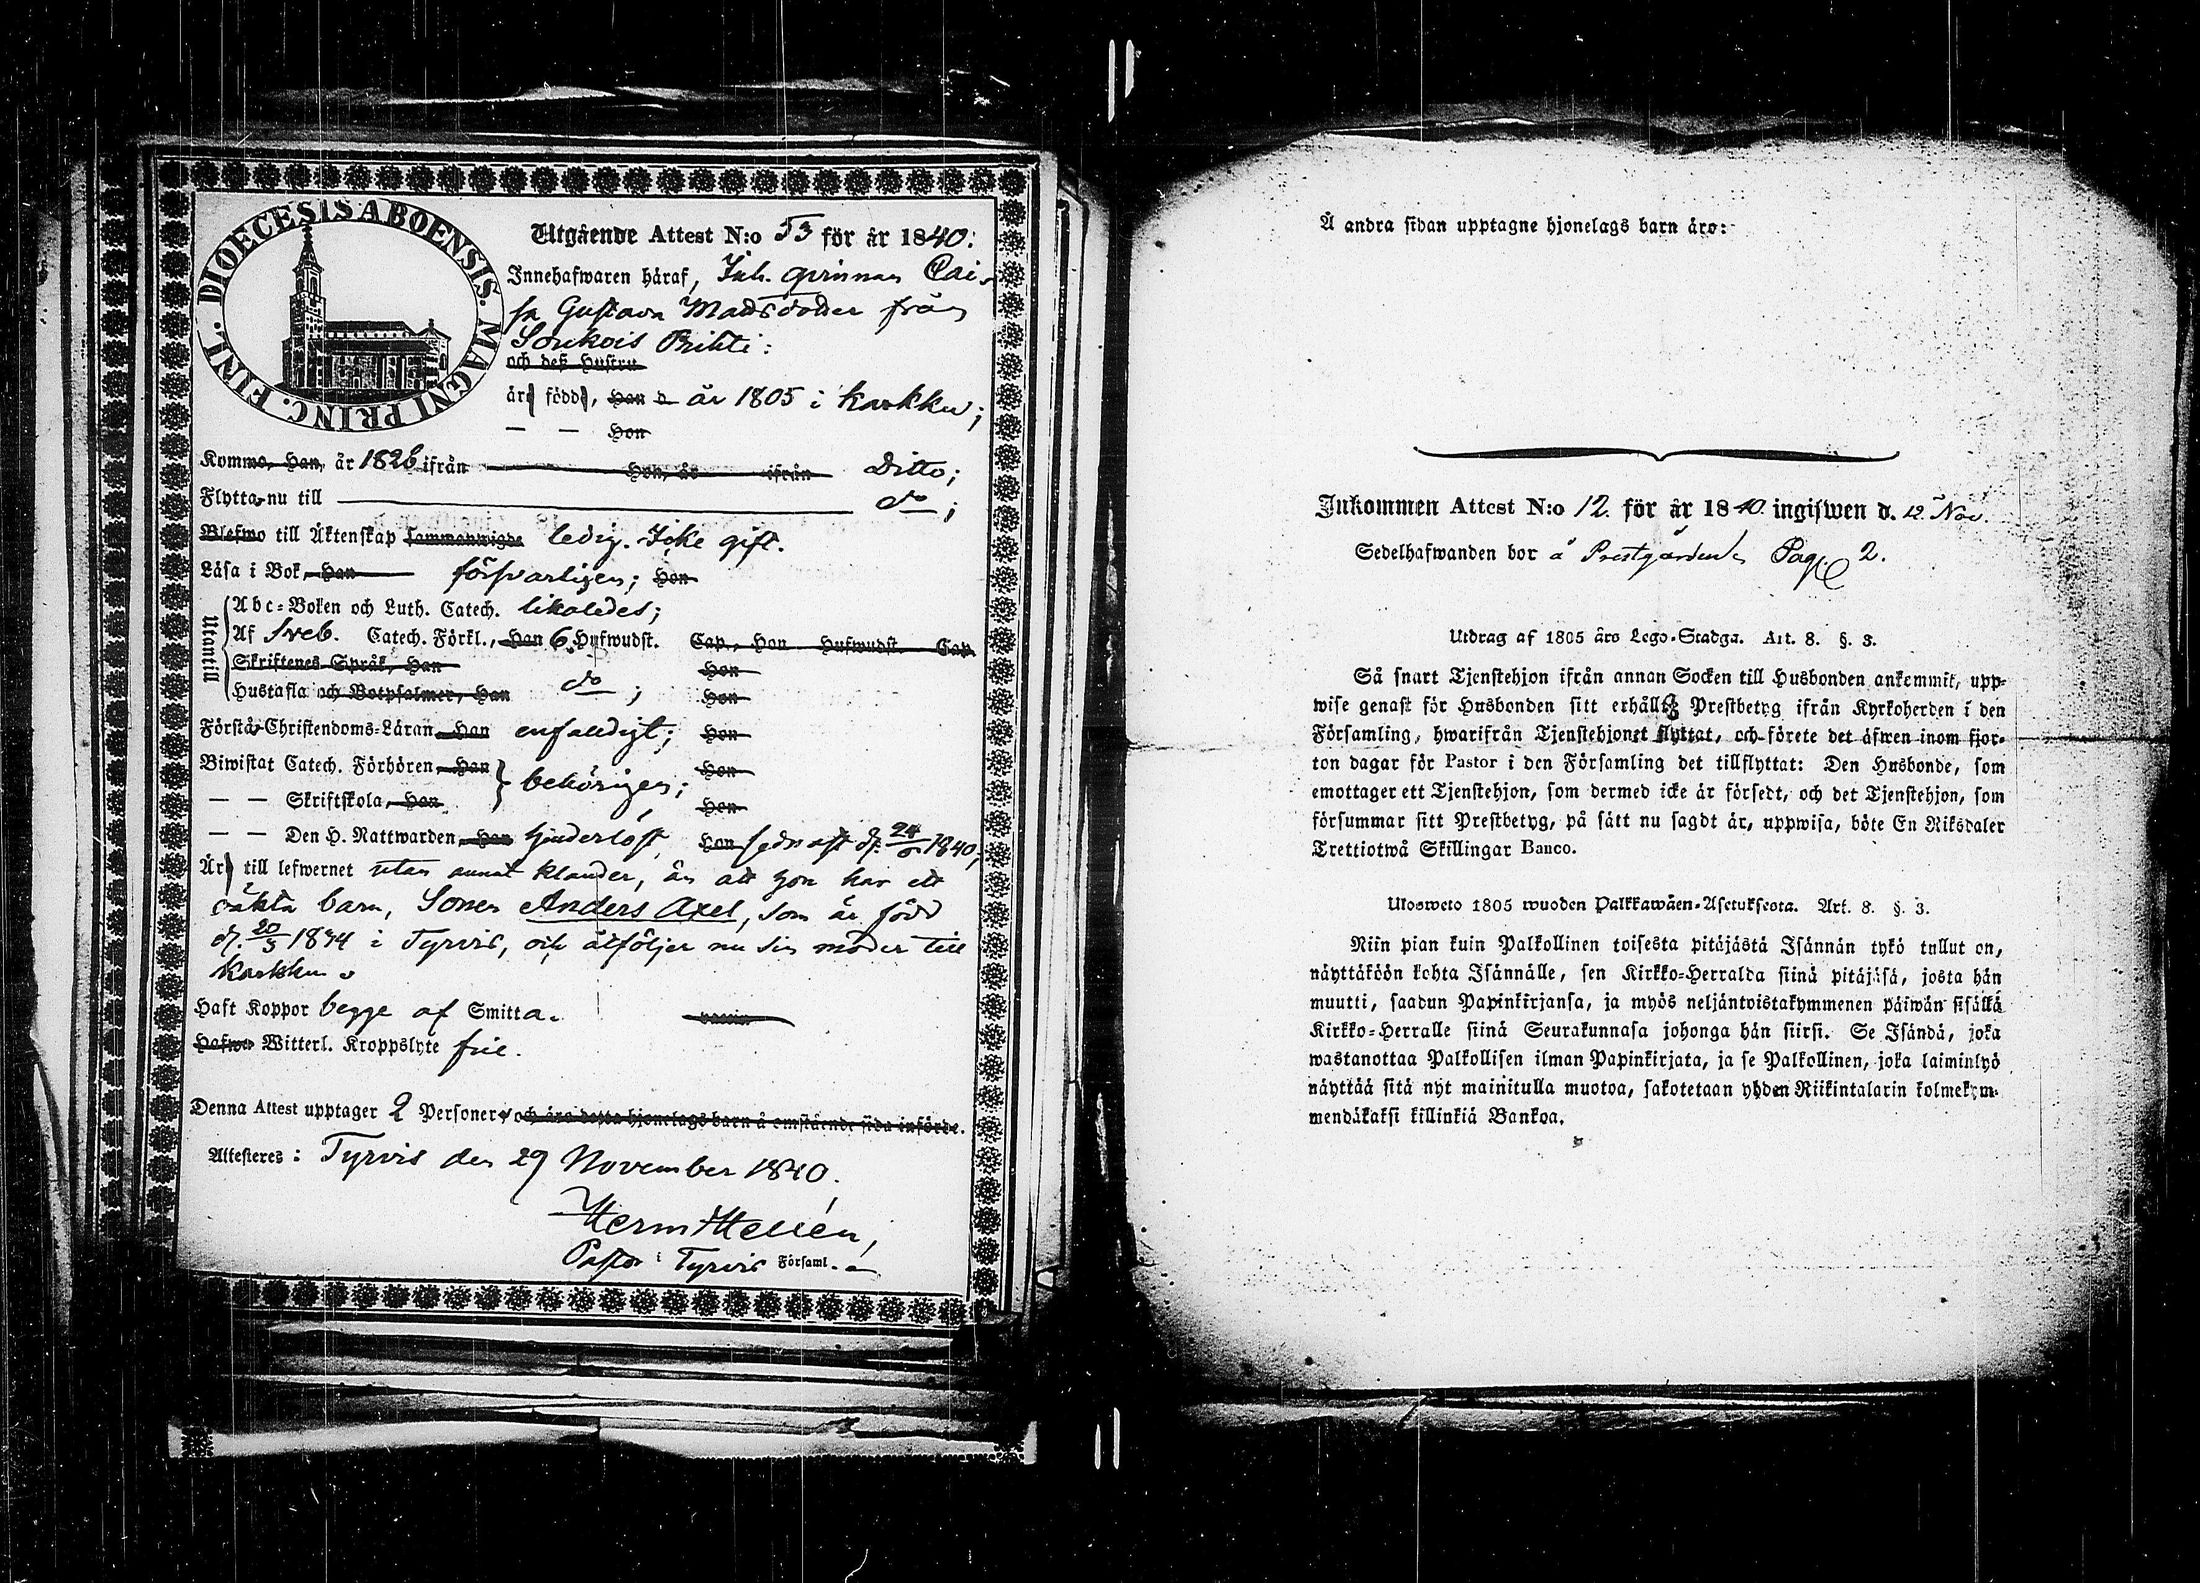 DIOECESIS ABOENSIS. MAGNI PRINC. FINL.
Utgående Attest N:o 53 för år 1840:
Innehafwaren häraf, Inh. qvinnan Cai-
sa Gustava Matsdotter från
Soukois Prihti:
och deß Hustru
äro födde, Han d. år 1805 i Karkku;
— — Hon
Kommo, Han, år 1826 ifrån Hon, år ifrån Ditto;
Flytta nu till do;
Blefwo till Äktenskap sammanwigde ledig. Icke gift.
Läsa i Bok, Han försvarligen; Hon
Utantill
Abc-Boken och Luth. Catech. likaledes;
Af Sveb. Catech. Förkl., Han 6 Hufwudst. Cap., Hon Hufwudst. Cap.
Skriftenes Språk, Han Hon
Hustafla och Botpsalmer, Han do; Hon
Förstå Christendoms-Läran Han enfaldigt; Hon
Biwistat Catech. Förhören, Han behörigen; Hon
— — Skriftskola, Han Hon
— — Den H. Nattwarden, Han hinderlöst, Hon sednast d. 24/5 1840;
Äro till lefwernet utan annat klander, än att hon har ett
oäkta barn, Sonen Anders Axel, som är född
d. 20/3 1834 i Tyrvis, och åtföljer nu sin moder till
Karkku
Haft Koppor begge af Smitta.
Hafwa Witterl. Kroppslyte frie.
Denna Attest upptager 2 Personer, och äro detta hjonelags barn å omstående sida införde.
Attesteres: Tyrvis den 29 November 1840.
Herm Hellén,
Pastor i Tyrvis Församl.
Å andra sidan upptagne hjonelags barn äro:
Inkommen Attest N:o 12. för år 1840. ingifwen d. 12 Nov.
Sedelhafwanden bor å Prestgården Pag. 2.
Utdrag af 1805 års Lego-Stadga. Art. 8. §. 3.
Så snart Tjenstehjon ifrån annan Socken till Husbonden ankommit, upp-
wise genast för Husbonden sitt erhållte Prestbetyg ifrån Kyrkoherden i den
Församling, hwarifrån Tjenstehjonet flyttat, och förete det äfwen inom fjor-
ton dagar för Pastor i den Församling det tillflyttat: Den Husbonde, som
emottager ett Tjenstehjon, som dermed icke är försedt, och det Tjenstehjon, som
försummar sitt Prestbetyg, på sätt nu sagdt är, uppwisa, böte En Riksdaler
Trettiotwå Skillingar Banco.
Ulosweto 1805 wuoden Palkkawäen-Asetuksesta. Art. 8. §. 3.
Niin pian kuin Palkollinen toisesta pitäjästä Isännän tykö tullut on,
näyttäköön kohta Isännälle, sen Kirkko-Herralda siinä pitäjäsä, josta hän
muutti, saadun Papinkirjansa, ja myös neljäntoistakymmenen päiwän sisällä
Kirkko-Herralle siinä Seurakunnasa johonga hän siirsi. Se Isändä, joka
wastanottaa Palkollisen ilman Papinkirjata, ja se Palkollinen, joka laiminlyö
näyttää sitä nyt mainitulla muotoa, sakotetaan yhden Riikintalarin kolmekym-
mendäkaksi killinkiä Bankoa.